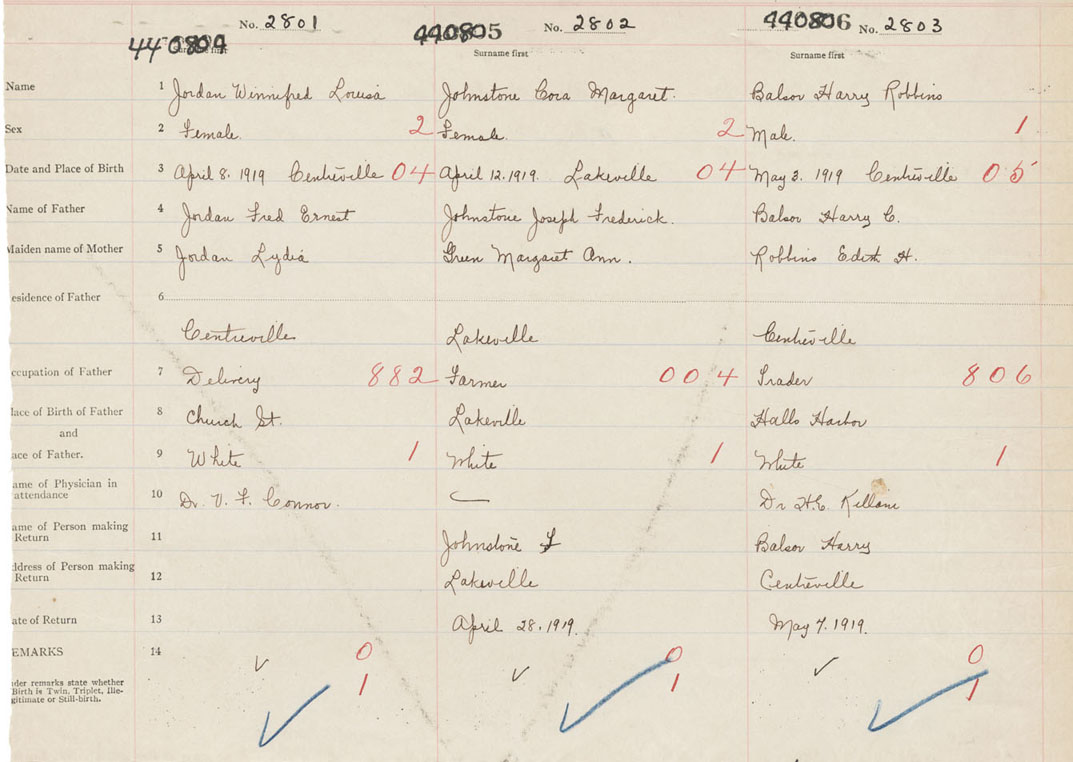 No. 2801 No. 2802 440806 No. 2803
440804 440805
Surname first Surname first Surname first
Name 1 Jordan Winnifred Louisa Johnstone Cora Margaret. Balsor Harry Robbins
Sex 2 Female. 2 Female. 2 Male. 1
Date and Place of Birth 3 April 8. 1919 Centreville 04 April 12. 1919. Lakeville 04 May 3. 1919 Centreville 05
Name of Father 4 Jordan Fred Ernest Johnstone Joseph Frederick. Balsor Harry C.
Maiden name of Mother 5 Jordan Lydia Green Margaret Ann. Robbins Edith H.
esidence of Father 6
Centreville Lakeville Centreville
ccupation of Father 7 Delivery 882 Farmer 004 Trader 806
lace of Birth of Father 8 Church St. Lakeville Halls Harbor
and
ace of Father. 9 White 1 White 1 White 1
ame of Physician in
attendance 10 Dr. V. F. Connor. — Dr H.E. Killam
ame of Person making
Return 11 Johnstone F Balsor Harry
ddress of Person making
Return 12 Lakeville Centreville
ate of Return 13 April 28. 1919. May 7. 1919.
EMARKS 14 0 0 0
nder remarks state whether
Birth is Twin, Triplet, Ille-
gitimate or Still-birth. 1 1 1